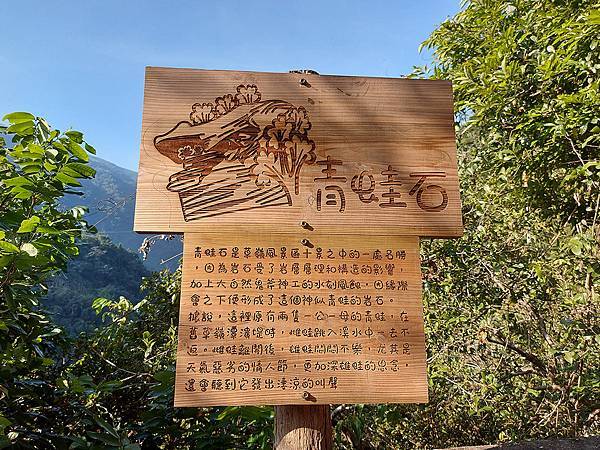 青蛙石
青蛙石是草嶺風景區十景之中的一處名勝
，因為岩石受了岩層層理和構造的影響，
加上大自然鬼斧神工的水刻風蝕，因緣際
會之下便形成了這個神似青蛙的岩石。
據說，這裡原有兩隻一公一母的青蛙，在
舊草嶺潭潰堤時，雌蛙跳入溪水中一去不
返。雌蛙離開後，雄蛙悶悶不樂，尤其是
天氣惡劣的情人節，更加深雄蛙的思念，
還會聽到它發出淒涼的叫聲